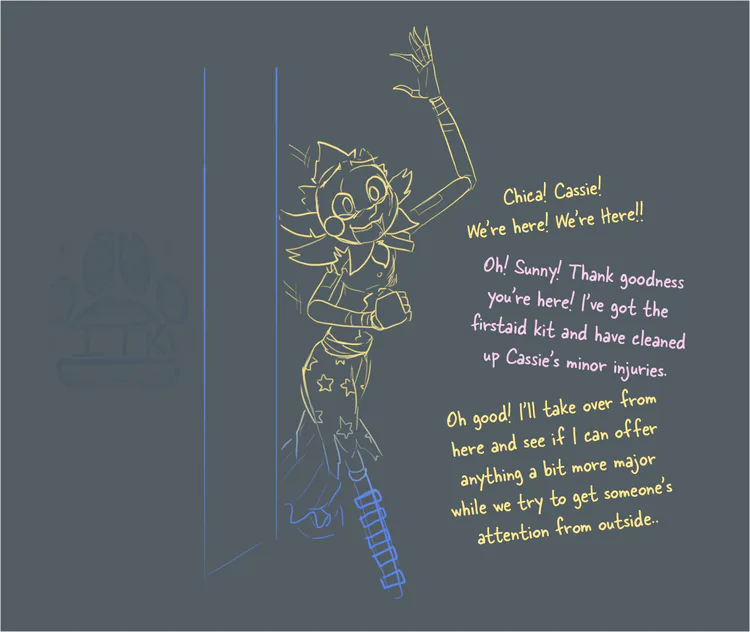 Chica! Cassie!
We're here! We're Here!!
Oh! Sunny! Thank goodness
you're here! I've got the
firstaid kit and have cleaned
up Cassie's minor injuries.
Oh good! I'll take over from
here and see if I can offer
anything a bit more major
while we try to get someone's
attention from outside..